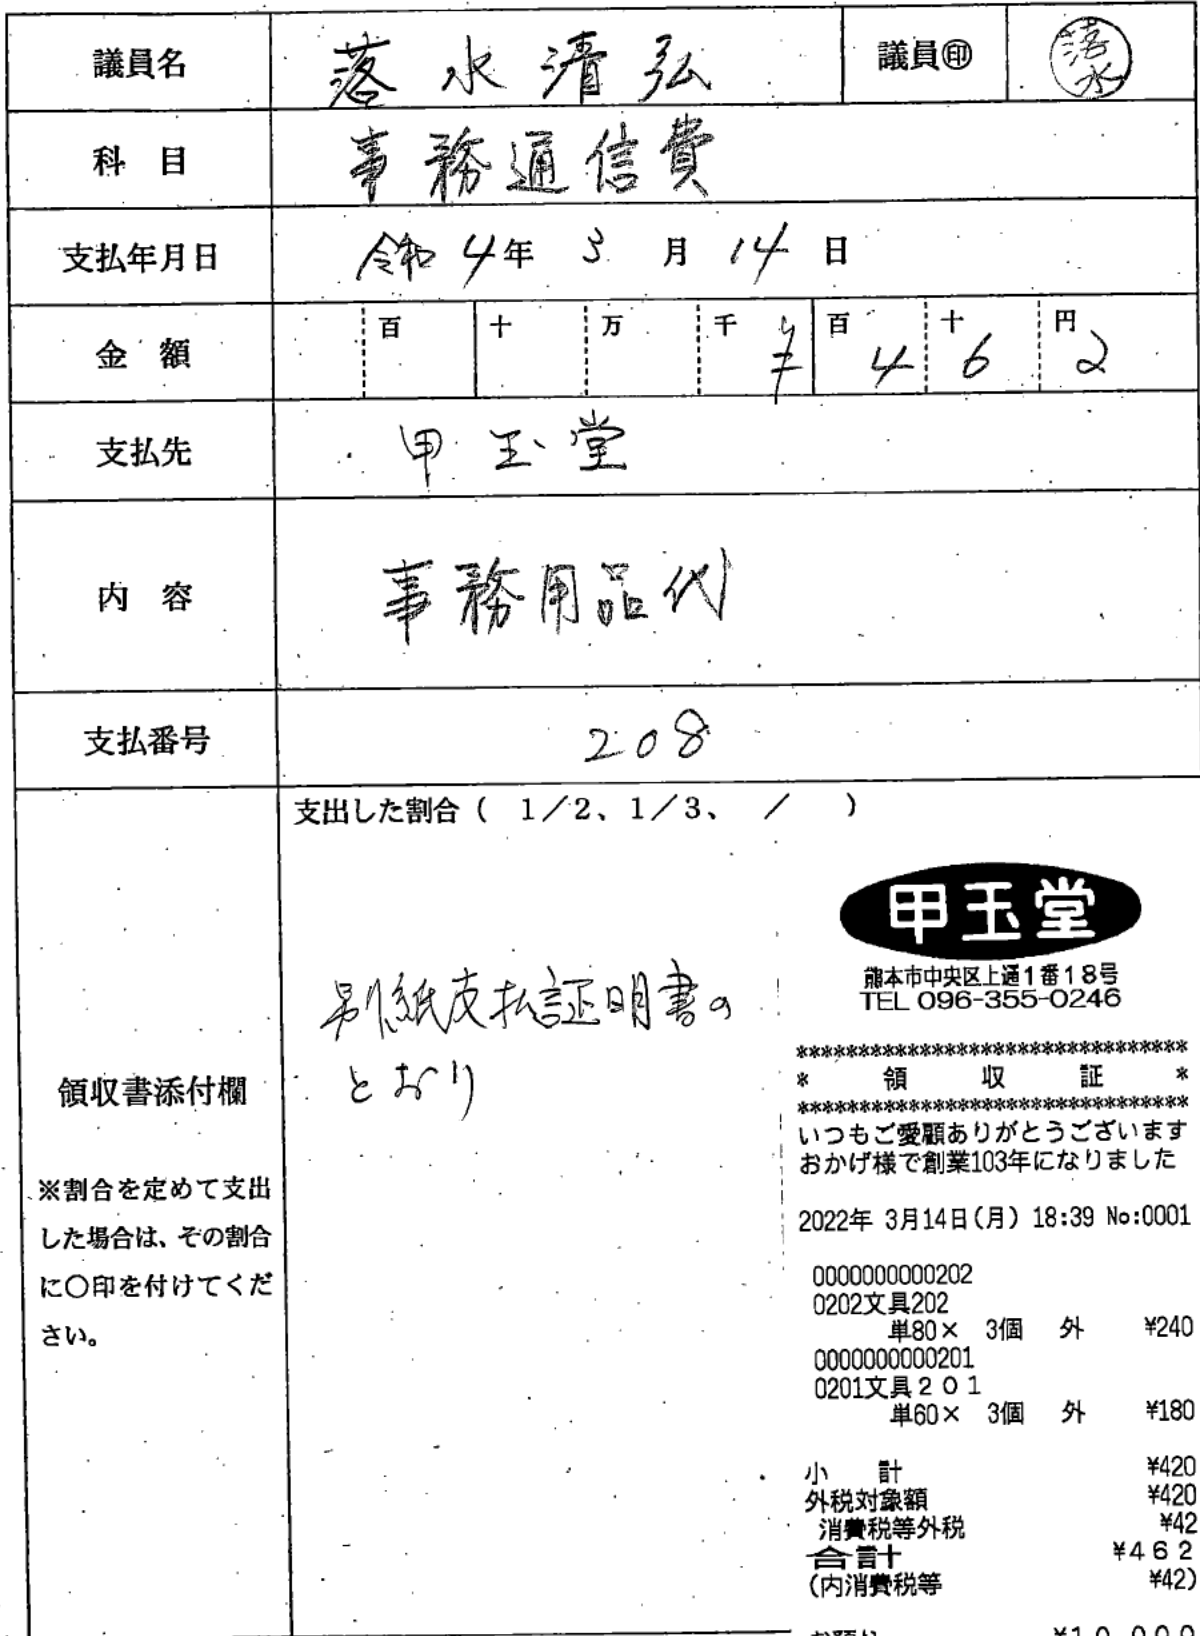 議員名 落水清弘 議員㊞ 落水
科 目 事務通信費
支払年月日 令和 4年 3月 14日
金 額 百 十 万 千 ¥ 百 4 十 6 円 2
支払先 甲玉堂
内 容 事務用品代
支払番号 208
支出した割合( 1/2、1/3、 / )
領収書添付欄
※割合を定めて支出
した場合は、その割合
に〇印を付けてくだ
さい。
別紙支払証明書の
とおり
甲玉堂
熊本市中央区上通1番18号
TEL 096-355-0246
********************************
* 領 収 証 *
********************************
いつもご愛顧ありがとうございます
おかげ様で創業103年になりました
2022年 3月14日(月) 18:39 No:0001
0000000000202
0202文具202
単80× 3個 外 ¥240
0000000000201
0201文具201
単60× 3個 外 ¥180
小 計 ¥420
外税対象額 ¥420
消費税等外税 ¥42
合計 ¥462
(内消費税等 ¥42)
お預り ¥10,000